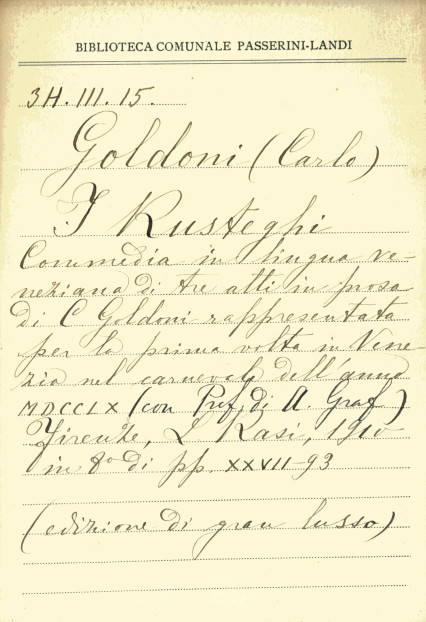 BIBLIOTECA COMUNALE PASSERINI-LANDI
3H.III.15.
Goldoni (Carlo)
I Rusteghi
Commedia in lingua ve-
neziana di tre atti in prosa
di C Goldoni rappresentata
per la prima volta in Vene-
zia nel carnevale dell'anno
MDCCLX (con Pref. di A. Graf)
Firenze, L Rasi, 1910
in 8° di pp. XXVII-93
(edizione di gran lusso)